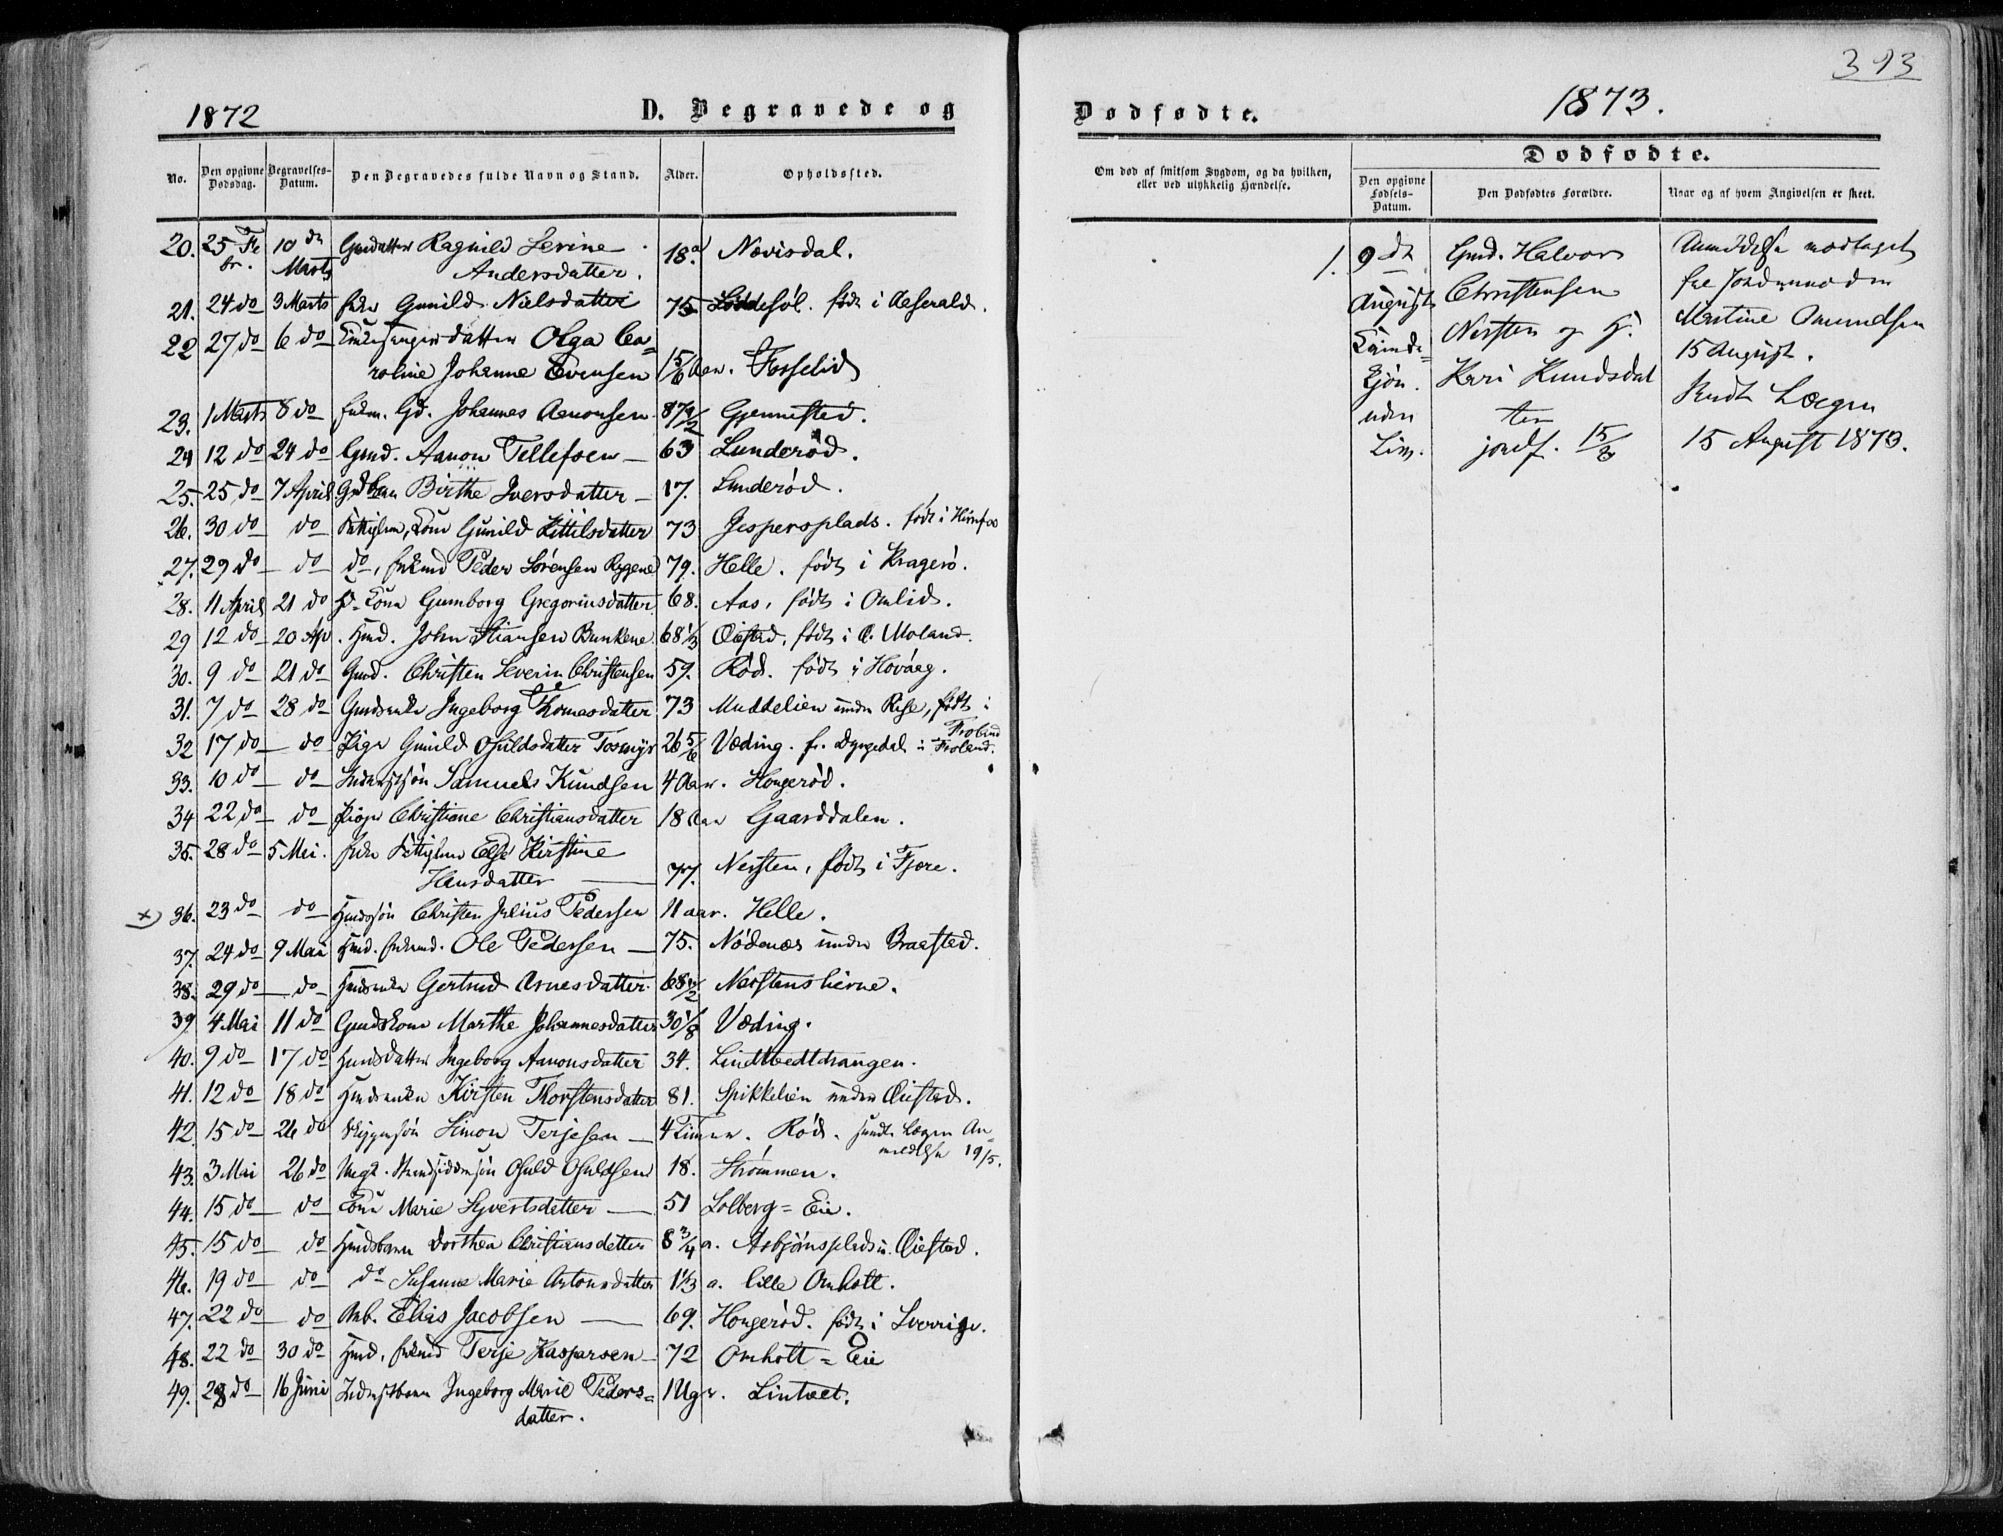 1872
D. Begravede og
No. Den opgivne Dødsdag. Begravelses-Datum. Den Begravedes fulde Navn og Stand. Alder. Opholdssted.
20. 25 Fe 10 de Gmdatter Ragnild Serine 18 a Nævisdal.
br. Marts Andersdatter.
21. 24 do 3 Marts Gunild Nielsdatter 75 født i Aaserald.
22 27 do 6 do Kirkesanger datter Olga Ca=
roline Johanne Evensen 15/6 Aar. Fosselid
23. 1 Marts 8 do Gd. Johannes Aanonsen 87 1/2 Gjennestad.
24 12 do 24 do Gmd. Aanon Tellefsen 63 Lunderød.
25. 25 do 7 April Birthe Iversdatter 17. Lunderød.
26. 30 do do Fattiglem, Kone Gunild Kittilsdatter 73 Jespersplads. født i
27. 29 do do do, Enkemd Peder Sørensen Rygene 79. Helle. født i Kragerø.
28. 11 April 21 do Kone Gumborg Gregoriusdatter 68. Aas, født i Omlid.
29 12 do 20 Ap. Hmd. John Stiansen Bunkene 68 1/3 Øiestad, født i Ø. Moland.
30. 9 do 21 do Gmd. Christen Severin Christensen 59. Rød. født i Hovaag.
31. 7 do 28 do Gmdsenke Ingeborg Thomasdatter 73 Muddelien under Rise, født i
Froland
32 17 do do Pige Gunild Osuldsdatter Tosmyr 26 5/6 Væding. fr. Dyngedal i Froland.
33. 10 do do Samuel Knudsen 4 Aar. Hougerød.
34 22 do do Pige Christiane Christiansdatter 18 Aar Gaarddalen.
35. 28 do 5 Mai. Fattiglem Else Kirstine
Hansdatter 77. Nersten, født i Fjære.
x) 36. 23 do do Hmdssøn Christen Julius Pedersen 11 aar. Helle.
37. 24 do 9 Mai Hmd. Enkemd. Ole Pedersen 75. Nødenæs under Braastad.
38. 29 do do Hmdsenke Gertrud Arnesdatter 68 1/2 Nerstensheiene.
39 4 Mai 11 do Gmdskone Marthe Johannesdatter 30 1/8 Væding.
40. 9 do 17 do Hmdsdatter Ingeborg Aanonsdatter 34. Lindtvedtdrangen.
41. 12 do 18 do Hmdsenke Kirsten Thorstensdatter 81. Spikkelien under Øiestad.
42. 15 do 26 do Simon Terjesen 4 Timer. Rød. sendt Lægen An=
meldelse 19/5.
43. 3 Mai 26 do Ungk. Osuld Osuldsen 18. Strømmen.
44. 15 do do Kone Marie Syvertsdatter 51 Solberg=Eie.
45. 15 do do Hmdsbarn Dorthea Christiansdatter 8 3/4 a. Asbjørnsplads u. Øiestad.
46. 19 do do do Susanne Marie Antonsdatter 1 1/3 a. lille Omholt.
47. 22 do do Arb. Elias Jacobsen 69. Hougerød. født i Sverrige.
48. 22 do 30 do Hmd, Enkemd Terje Kaspersen 72 Omholt=Eie
49. 28 do 16 Juni Ingeborg Marie Peders=
datter. 1 Uge. Lintveit.
393
1873.
Dødfødte.
Om død af smitsom Sygdom, og da hvilken, eller ved ulykkelig Hændelse.
Dødfødte.
Den opgivne Fødsels-Datum. Den Dødfødtes Forældre. Naar og af hvem Angivelsen er skeet.
1. 9 de Gmd. Halvor Anmeldelse modtaget
August Christensen fra Jordemoder
Kvinde= Nersten og H. Martine Omundsen
kjøn. Kari Knudsdat 15 August.
uden ter Sendt Lægen
Liv. jordf. 15/8 15 August 1873.